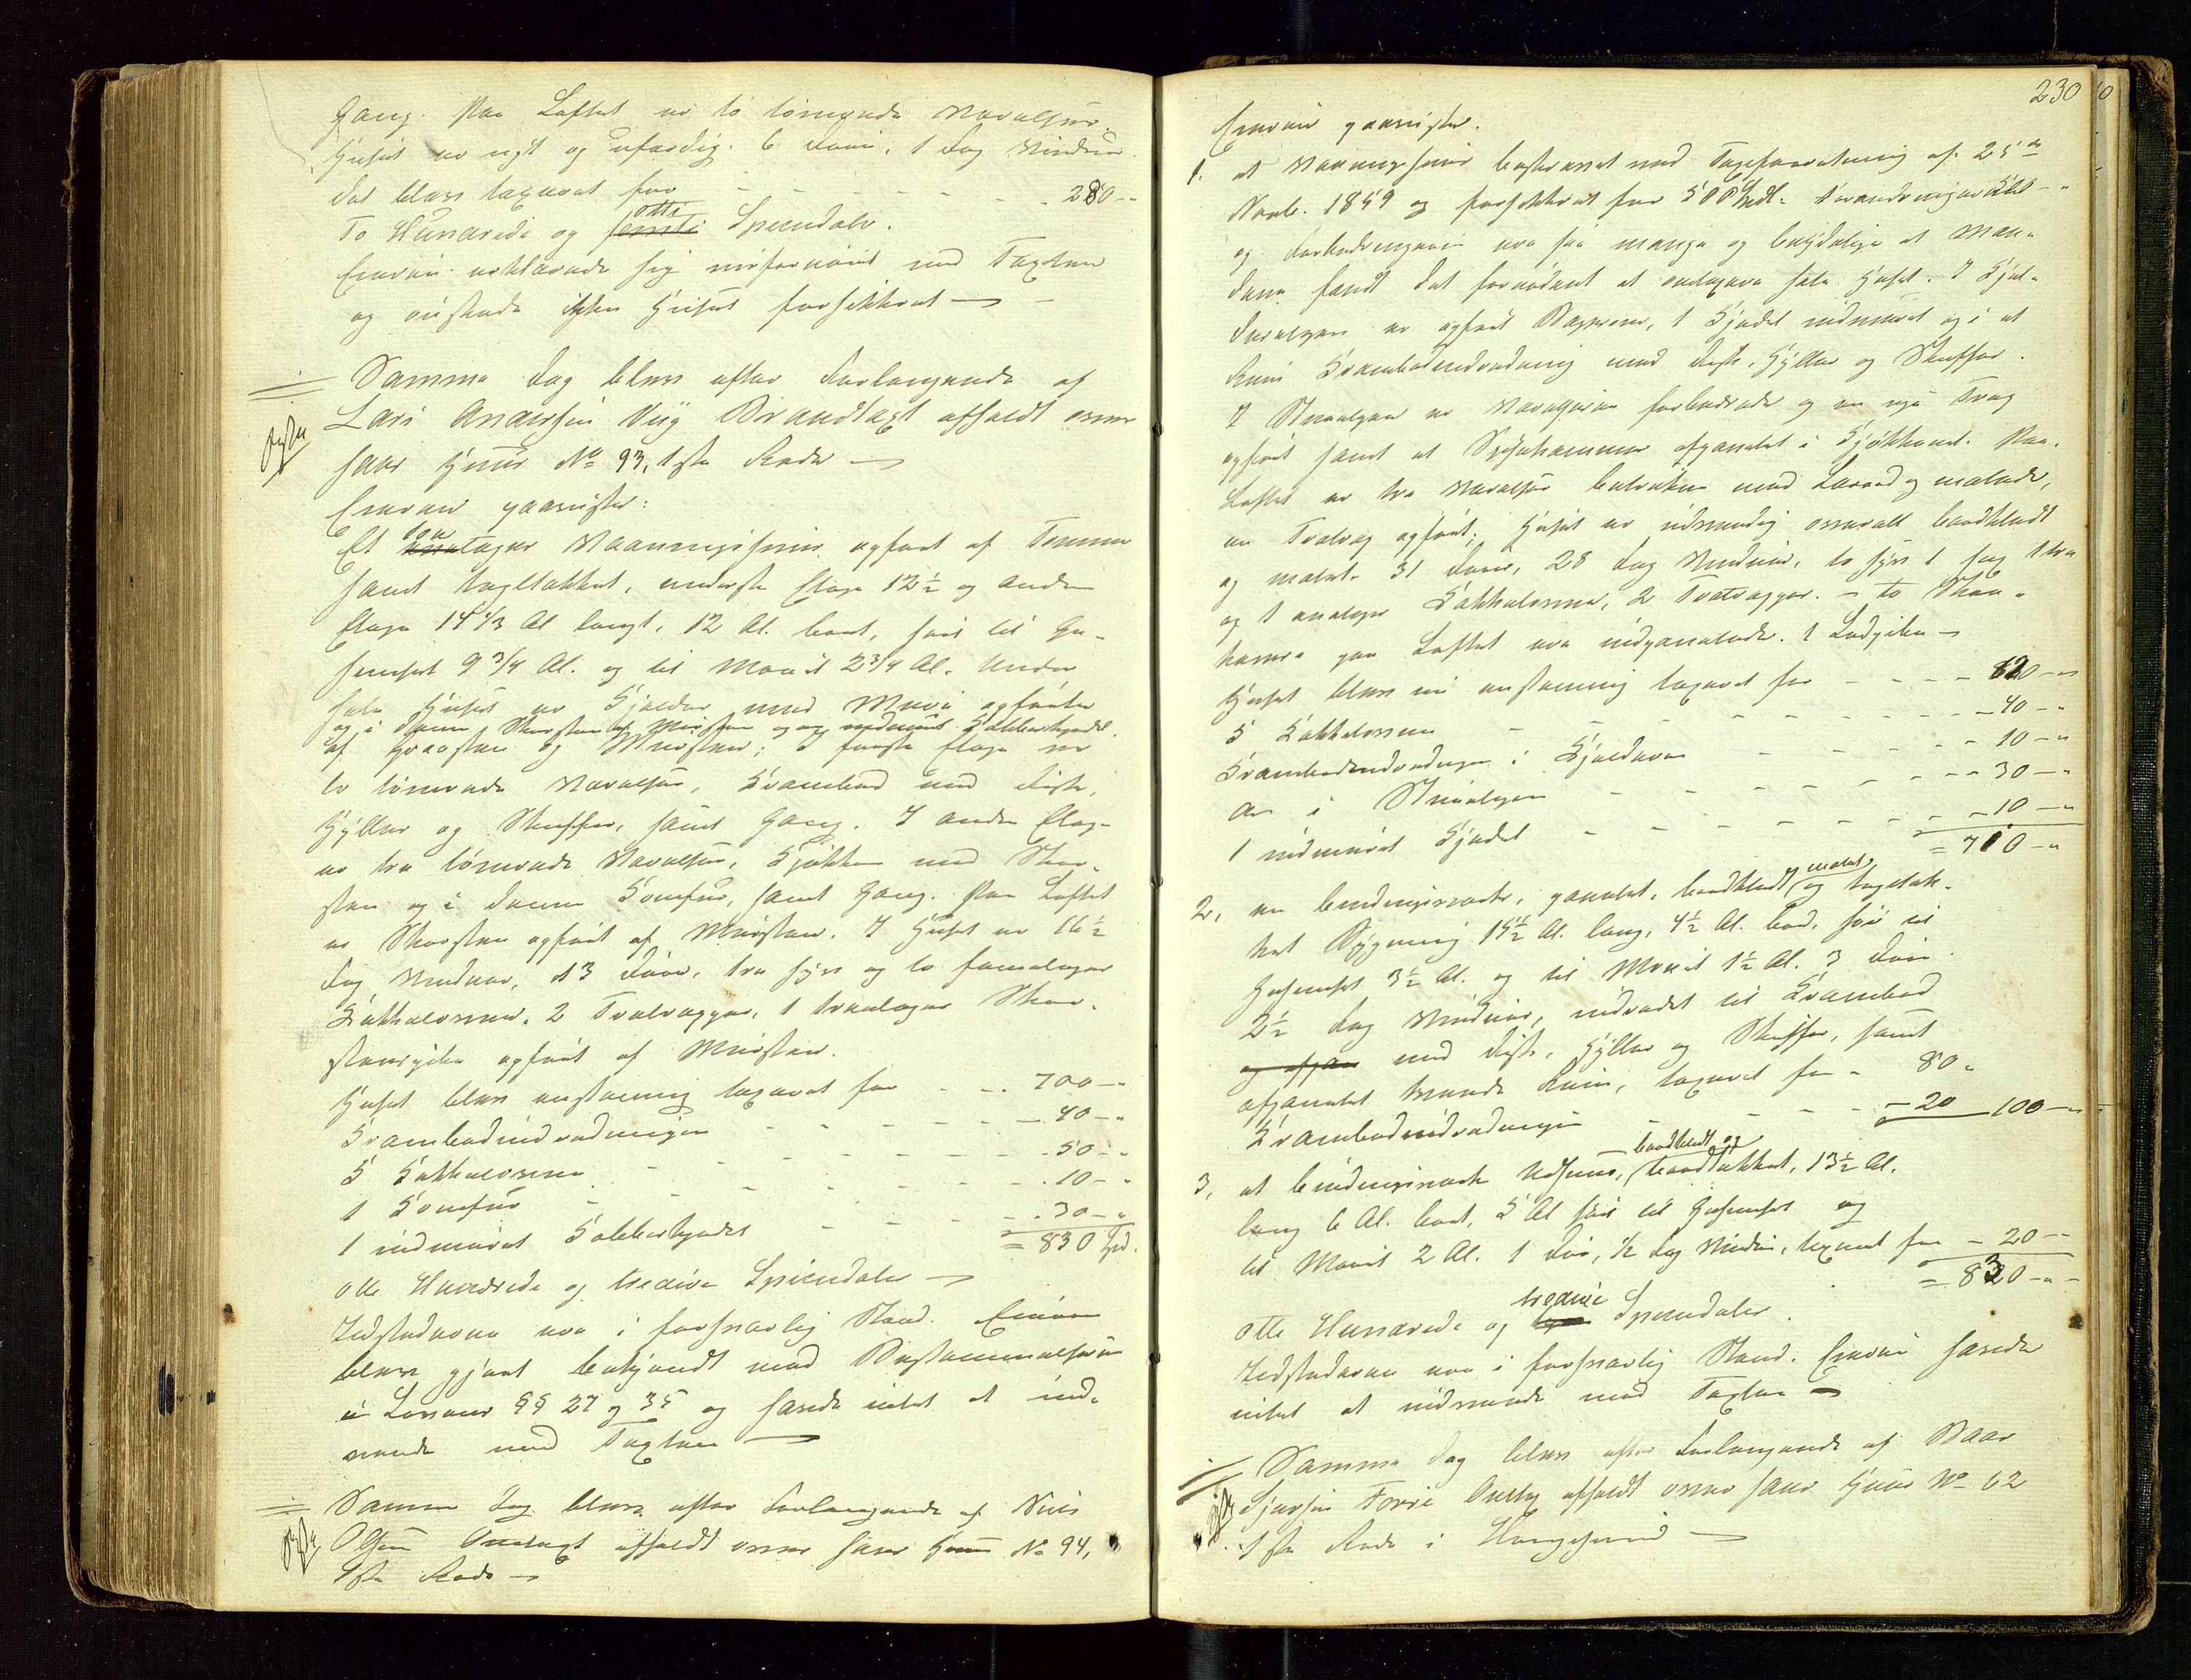 Gang. Paa Loftet er to tømrede Værelser.
Huset er nyt og ufærdig. 6 Døre, 1 Fag Vinduer.
det blev taxeret for - - - - - 280 - "
To Hundrede og otti Speciedaler.
Eieren erklærede sig misfornøiet med Taxten
og ønskede ikke Huset forsikkret —
Samme Dag blev efter Forlangende af
Lars Andersen Viig Brandtaxt afholdt over
hans Huus No 93, 1ste Rode —
Eieren paaviste:
Et toetages Vaaningshuus opført af Tømmer
samt tegltækket, underste Etage 12½ og anden
Etage 14 1/3 Al langt, 12 Al. bredt, høit til Ge-
semset 9 3/4 Al. og til Mønet 2 3/4 Al. Under
hele Huset er Kjelder med Mure opførte
og i denne Skorsten af Mursten og en indmuret Kobberkjedel.
af Graasten og Mursten; i første Etage er
to tømrede Værelser, Krambod med Disk,
Hylder og Skuffer, samt Gang. I anden Etage
er tre tømrede Værelser, Kjøkken med Skor-
sten og i denne Komfur, samt Gang. Paa Loftet
er Skorsten opført af Mursten. I Huset er 16½
Fag Vinduer, 13 Døre, tre Jern og to femetages
Kakkelovne, 2 Trætrapper, 1 Skor-
stenspibe opført af Mursten.
Huset blev enstemmig taxeret for - - 700 - "
Krambodindredningen - - - - - 40 - "
5 Kakkelovne - - - - - 50 - "
1 Komfur - - - - - 10 - "
1 indmuret Kobberkjedel - - - 30 - "
= 830 Spd.
otte Hundrede og tredive Speciedaler —
Ildstederne ere i forsvarlig Stand. Eieren
blev gjort bekjendt med Bestemmelserne
i Lovens §§ 27 og 35 og havde intet at ind-
vende mod Taxten —
Samme Dag blev efter Forlangende af Niels
Olsen Omtaxt afholdt over hans Huus No 94,
1ste Rode —
230
Eieren paaviste.
1. et Vaaningshuus beskrevet ved Taxtforretning af 25de
Novb. 1859 og forsikkret for 500 Spdl. Forandringerne
og Forbedringerne ere saa mange og betydelige at Mæn-
dene fandt det fornødent at omtaxere hele Huset. I Kjel-
deretagen er opført Bagerovn, 1 Kjedel indmuret og i et
Rum Krambodindredning med Disk, Hylder og Skuffer.
I Stueetagen er Værelserne forbedrede og en ny Trap
opført samt et Spisekammer afpanelet i Kjøkkenet. Paa
Loftet er tre Værelser betrukne med Lærred og malede,
en Trætrap opført; Huset er udvendig overalt bordklædt
og malet. 31 Døre, 28 Fag Vinduer, to Jern 1 1 tre
og 1 enetages Kakkelovne, 2 Trætrapper. — to Skor-
paa Loftet ere indpanelede. 1 Ludpibe —
Huset blev nu enstemmig taxeret for - - - 620 - "
5 Kakkelovne - - - - - 40 - "
Krambodindredningen i Kjelderen - - - 10 - "
do i Stueetagen - - - - 30 - "
1 indmuret Kjedel - - - - - 10 - "
= 710 - "
2, en bindingsværks, panelet, bordklædt og malet, og tegltæk-
ket Bygning 15½ Al. lang, 4½ Al. bred, høi til
Gesemset 3½ Al. og til Mønet 1½ Al. 3 Døre
2½ Fag Vinduer, indredet til Krambod
med Disk, Hylder og Skuffer, samt
afpanelet Rum, taxeret for - 80 "
Krambodindredningen - - - - 20 100 - "
3, et bindingsværks Udhuus, bordklædt og bordtækket, 13½ Al.
lang 6 Al. bredt, 5 Al høit til Gesemset og
til Mønet 2 Al. 1 Dør, ½ Fag Vindue, taxeret for - 20 - "
= 830 - "
otte Hundrede og tredive Speciedaler.
Ildstederne ere i forsvarlig Stand. Eieren havde
intet at indvende mod Taxten —
Samme Dag blev efter Forlangende af Baar
Sjursen Torre Omtax afholdt over hans Huus No 62
1ste Rode i Haugesund —